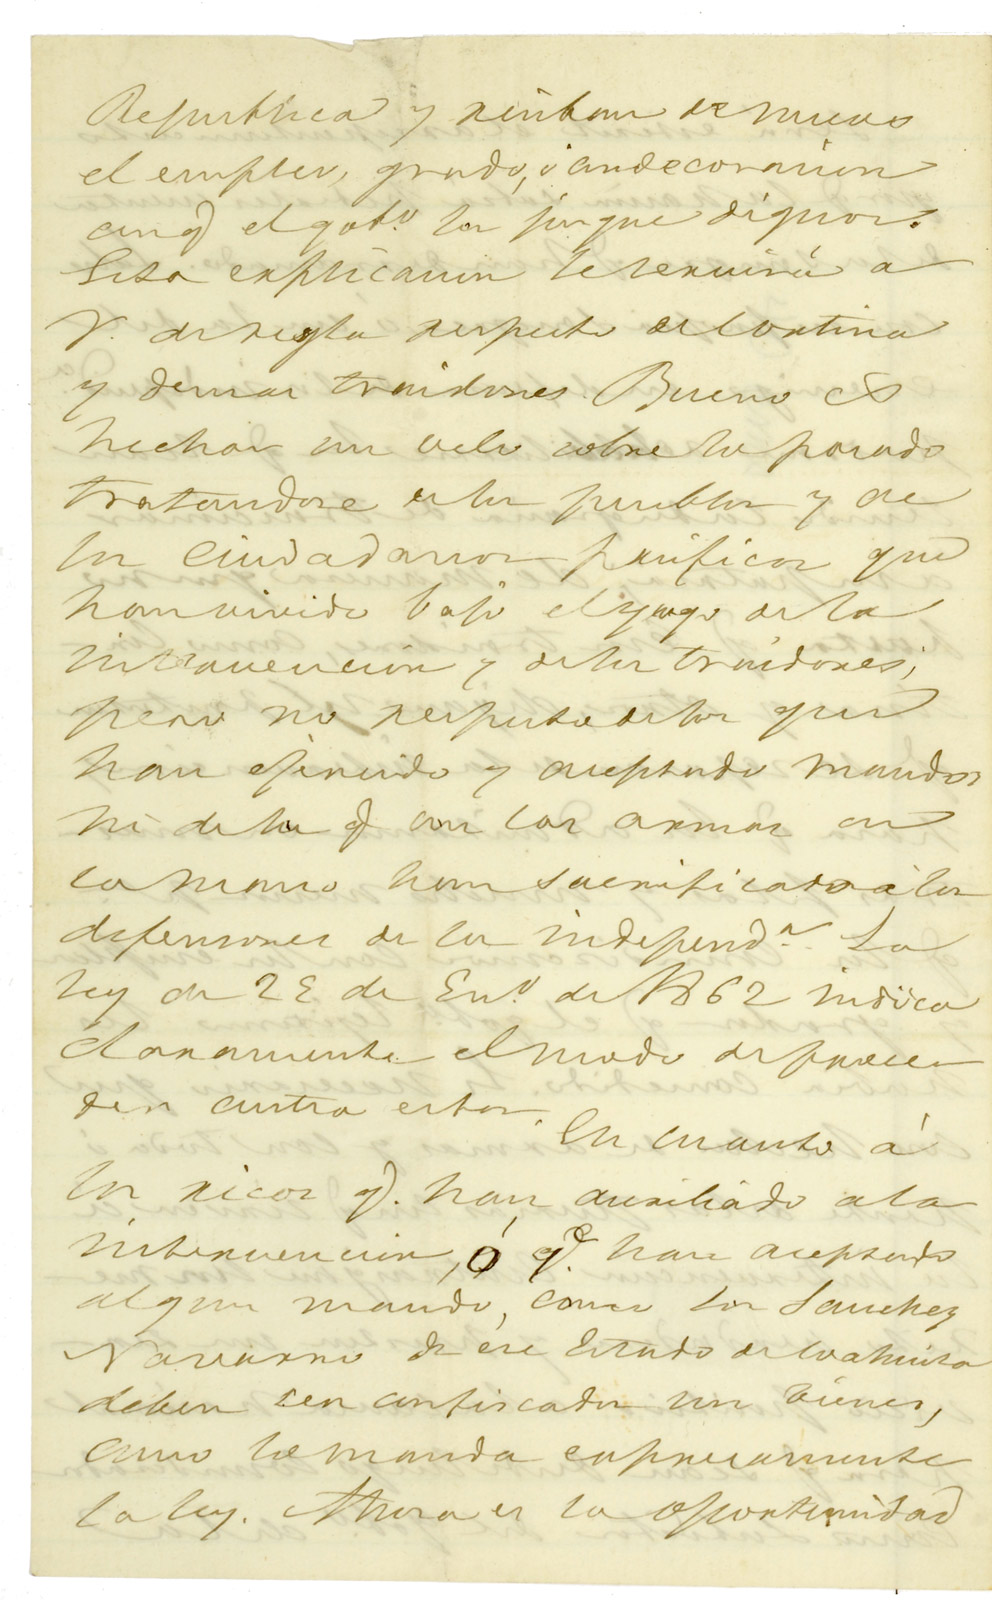 Republica y reciban de nuevo
el empleo, grado, ó condecoracion
conq̃ el gob.º los juzgue dignos.
Esta explicacion le servirá a
V. de regla respecto de Cortina
y demas traidores. Bueno es
hechar un velo sobre lo pasado
tratandose de los pueblos y de
los ciudadanos pacificos que
han vivido bajo el yugo de la
intervencion y de los traidores;
pero no respecto de los que
han ejercido y aceptado mandos
ni de los q̃ con las armas en
la mano han sacrificado a los
defensores de la independ.ª La
ley de 25 de En.º de 1862 indica
claramente el modo de proce
der contra estos.
En cuanto á
los ricos q̃. han auxiliado a la
intervencion, ó q̃e. han aceptado
algun mando, como los Sanchez
Navarro de ese Estado de Coahuila
deben ser confiscados sus bienes,
como lo manda expresamente
la ley. Ahora es la oportunidad